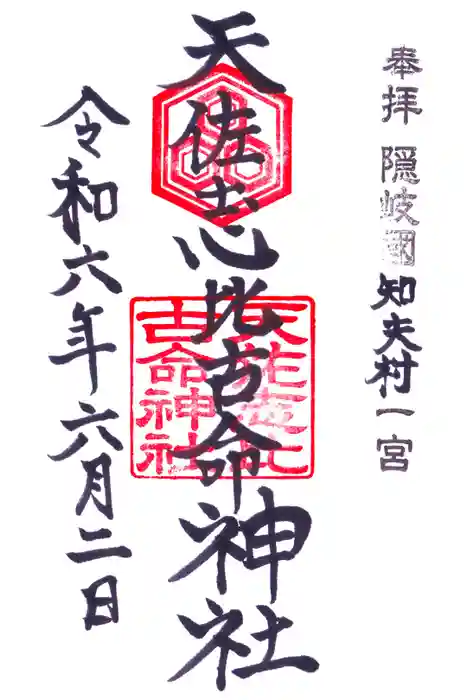 奉拝 隠岐國知夫村一宮
天佐志比古命神社
天佐志比
古命神社
令和六年六月二日